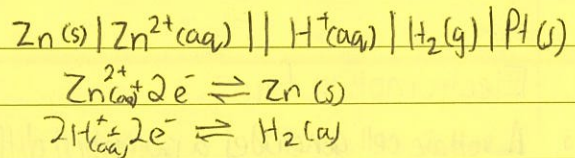 Zn(s) | Zn²⁺(aq) || H⁺(aq) | H₂(g) | Pt(s)
Zn²⁺(aq) + 2e⁻ ⇌ Zn(s)
2H⁺(aq) + 2e⁻ ⇌ H₂(g)